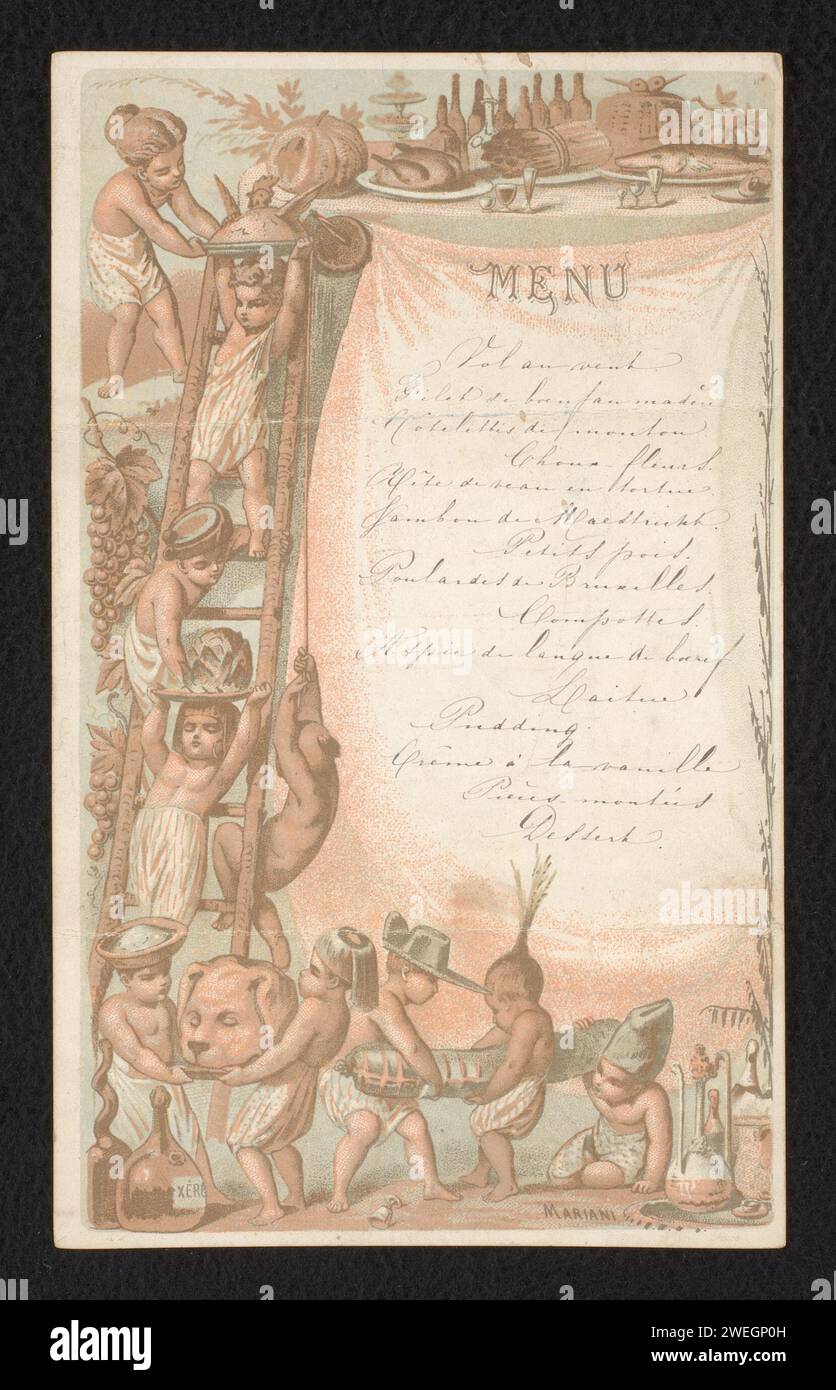 MENU
Vol au vent
Filet de bœuf au madère
Côtelettes de mouton
Choux-fleurs.
Tête de veau en tortue
Jambon de Maestricht.
Petits pois.
Poulardes de Bruxelles
Compottes.
Aspic de langue de bœuf
Laitue
Pudding
Crème à la vanille
Pièces-montées
Dessert.
XÉRÈ
MARIANI
alamy
Image ID: 2WEGP0H
www.alamy.com